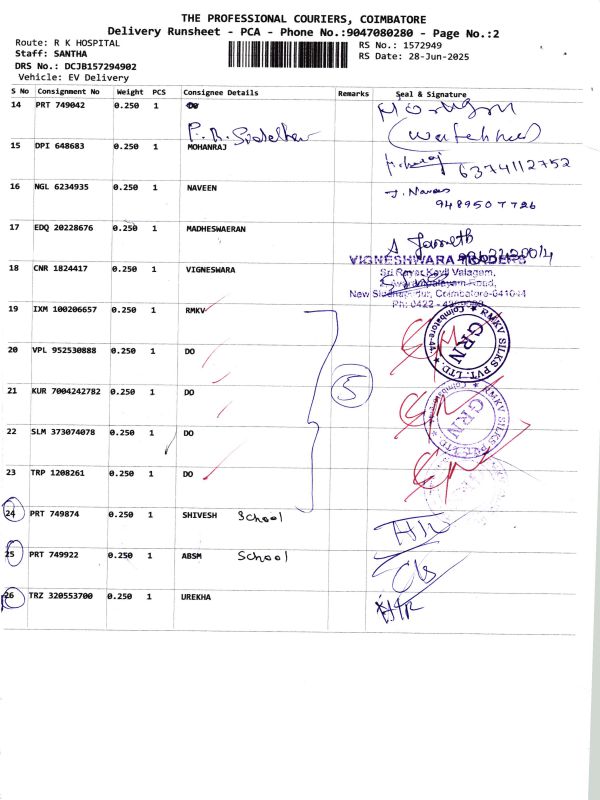 THE PROFESSIONAL COURIERS, COIMBATORE
Delivery Runsheet - PCA - Phone No.:9047080280 - Page No.:2
Route: R K HOSPITAL
RS No.: 1572949
Staff: SANTHA
RS Date: 28-Jun-2025
DRS No.: DCJB157294902
Vehicle: EV Delivery
S No Consignment No Weight PCS Consignee Details Remarks Seal & Signature
14 PRT 749042 0.250 1
15 DPI 648683 0.250 1 MOHANRAJ 6374112752
16 NGL 6234935 0.250 1 NAVEEN J. Naveen
9489507726
17 EDQ 20228676 0.250 1 MADHESWAERAN
18 CNR 1824417 0.250 1 VIGNESWARA VIGNESHWARA TRADERS
New Siddhapudur, Coimbatore-641044
Ph: 0422 -
19 IXM 100206657 0.250 1 RMKV
20 VPL 952530888 0.250 1 DO
21 KUR 7004242782 0.250 1 DO
22 SLM 373074078 0.250 1 DO
23 TRP 1208261 0.250 1 DO
5
RMKV SILKS PVT. LTD. Coimbatore-44.
GRN
RMKV SILKS PVT. LTD.
GRN
24 PRT 749874 0.250 1 SHIVESH School
25 PRT 749922 0.250 1 ABSM School
26 TRZ 320553700 0.250 1 UREKHA